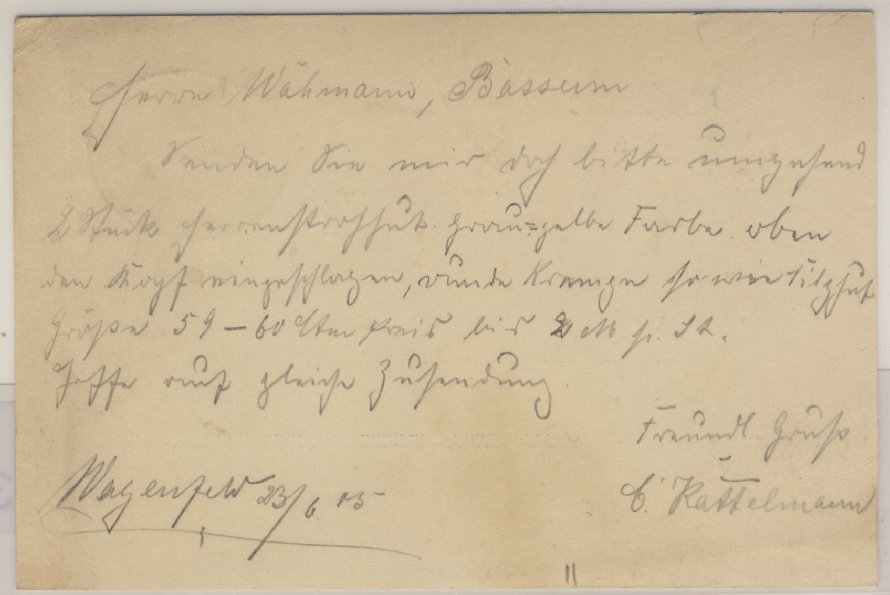 Herrn Wähmann, Bassum
Senden Sie mir doch bitte umgehend
2 Stück Herrenstrohhut grau-gelbe Farbe oben
den Kopf eingeschlagen, runde Krempe so wie Filzhut
Größe 59 – 60 Ctm Preis bis M p. St.
Hoffe auf gleiche Zusendung.
Freundl. Gruß
C. Kattelmann
Wagenfeld 23/6 15